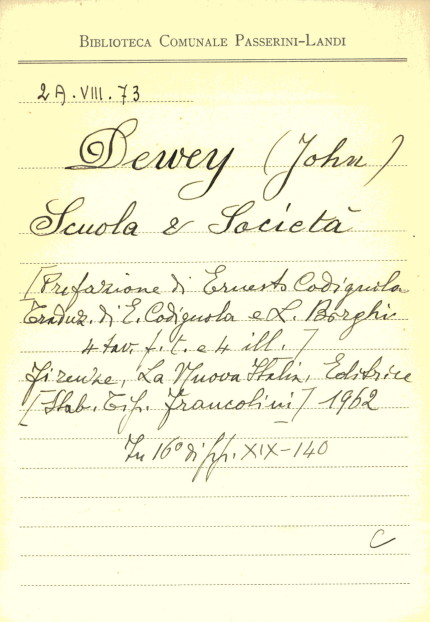 BIBLIOTECA COMUNALE PASSERINI-LANDI
2A.VIII.73
Dewey (John)
Scuola e Società
[Prefazione di Ernesto Codignola
Traduz. di E. Codignola e L. Borghi
4 tav. f. t. e 4 ill. ]
Firenze, La Nuova Italia, Editrice
[Stab. Tip. Francolini] 1962
In 16° di pp. XIX-140
C